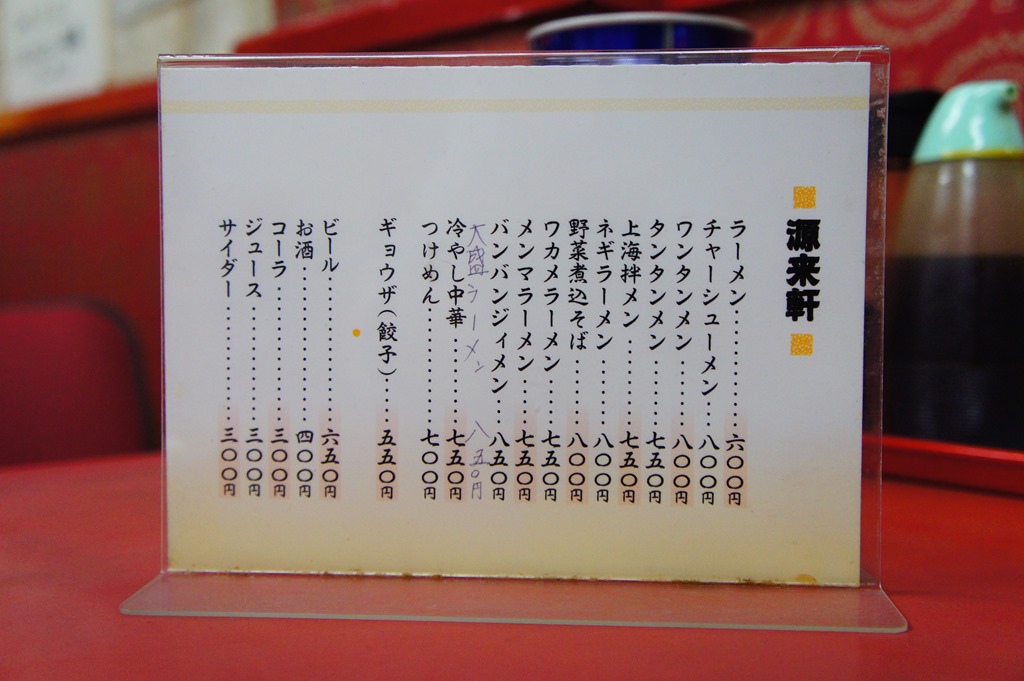 源来軒
ラーメン…………六〇〇円
チャーシューメン…八〇〇円
ワンタンメン………八〇〇円
タンタンメン………七五〇円
上海拌メン…………七五〇円
ネギラーメン………八〇〇円
野菜煮込そば………八〇〇円
ワカメラーメン……七五〇円
メンマラーメン……七五〇円
バンバンジィメン…八五〇円
大盛ラーメン 八五〇円
冷やし中華…………七五〇円
つけめん……………七〇〇円
ギョウザ(餃子)……五五〇円
ビール………………六五〇円
お酒…………………四〇〇円
コーラ………………三〇〇円
ジュース……………三〇〇円
サイダー……………三〇〇円